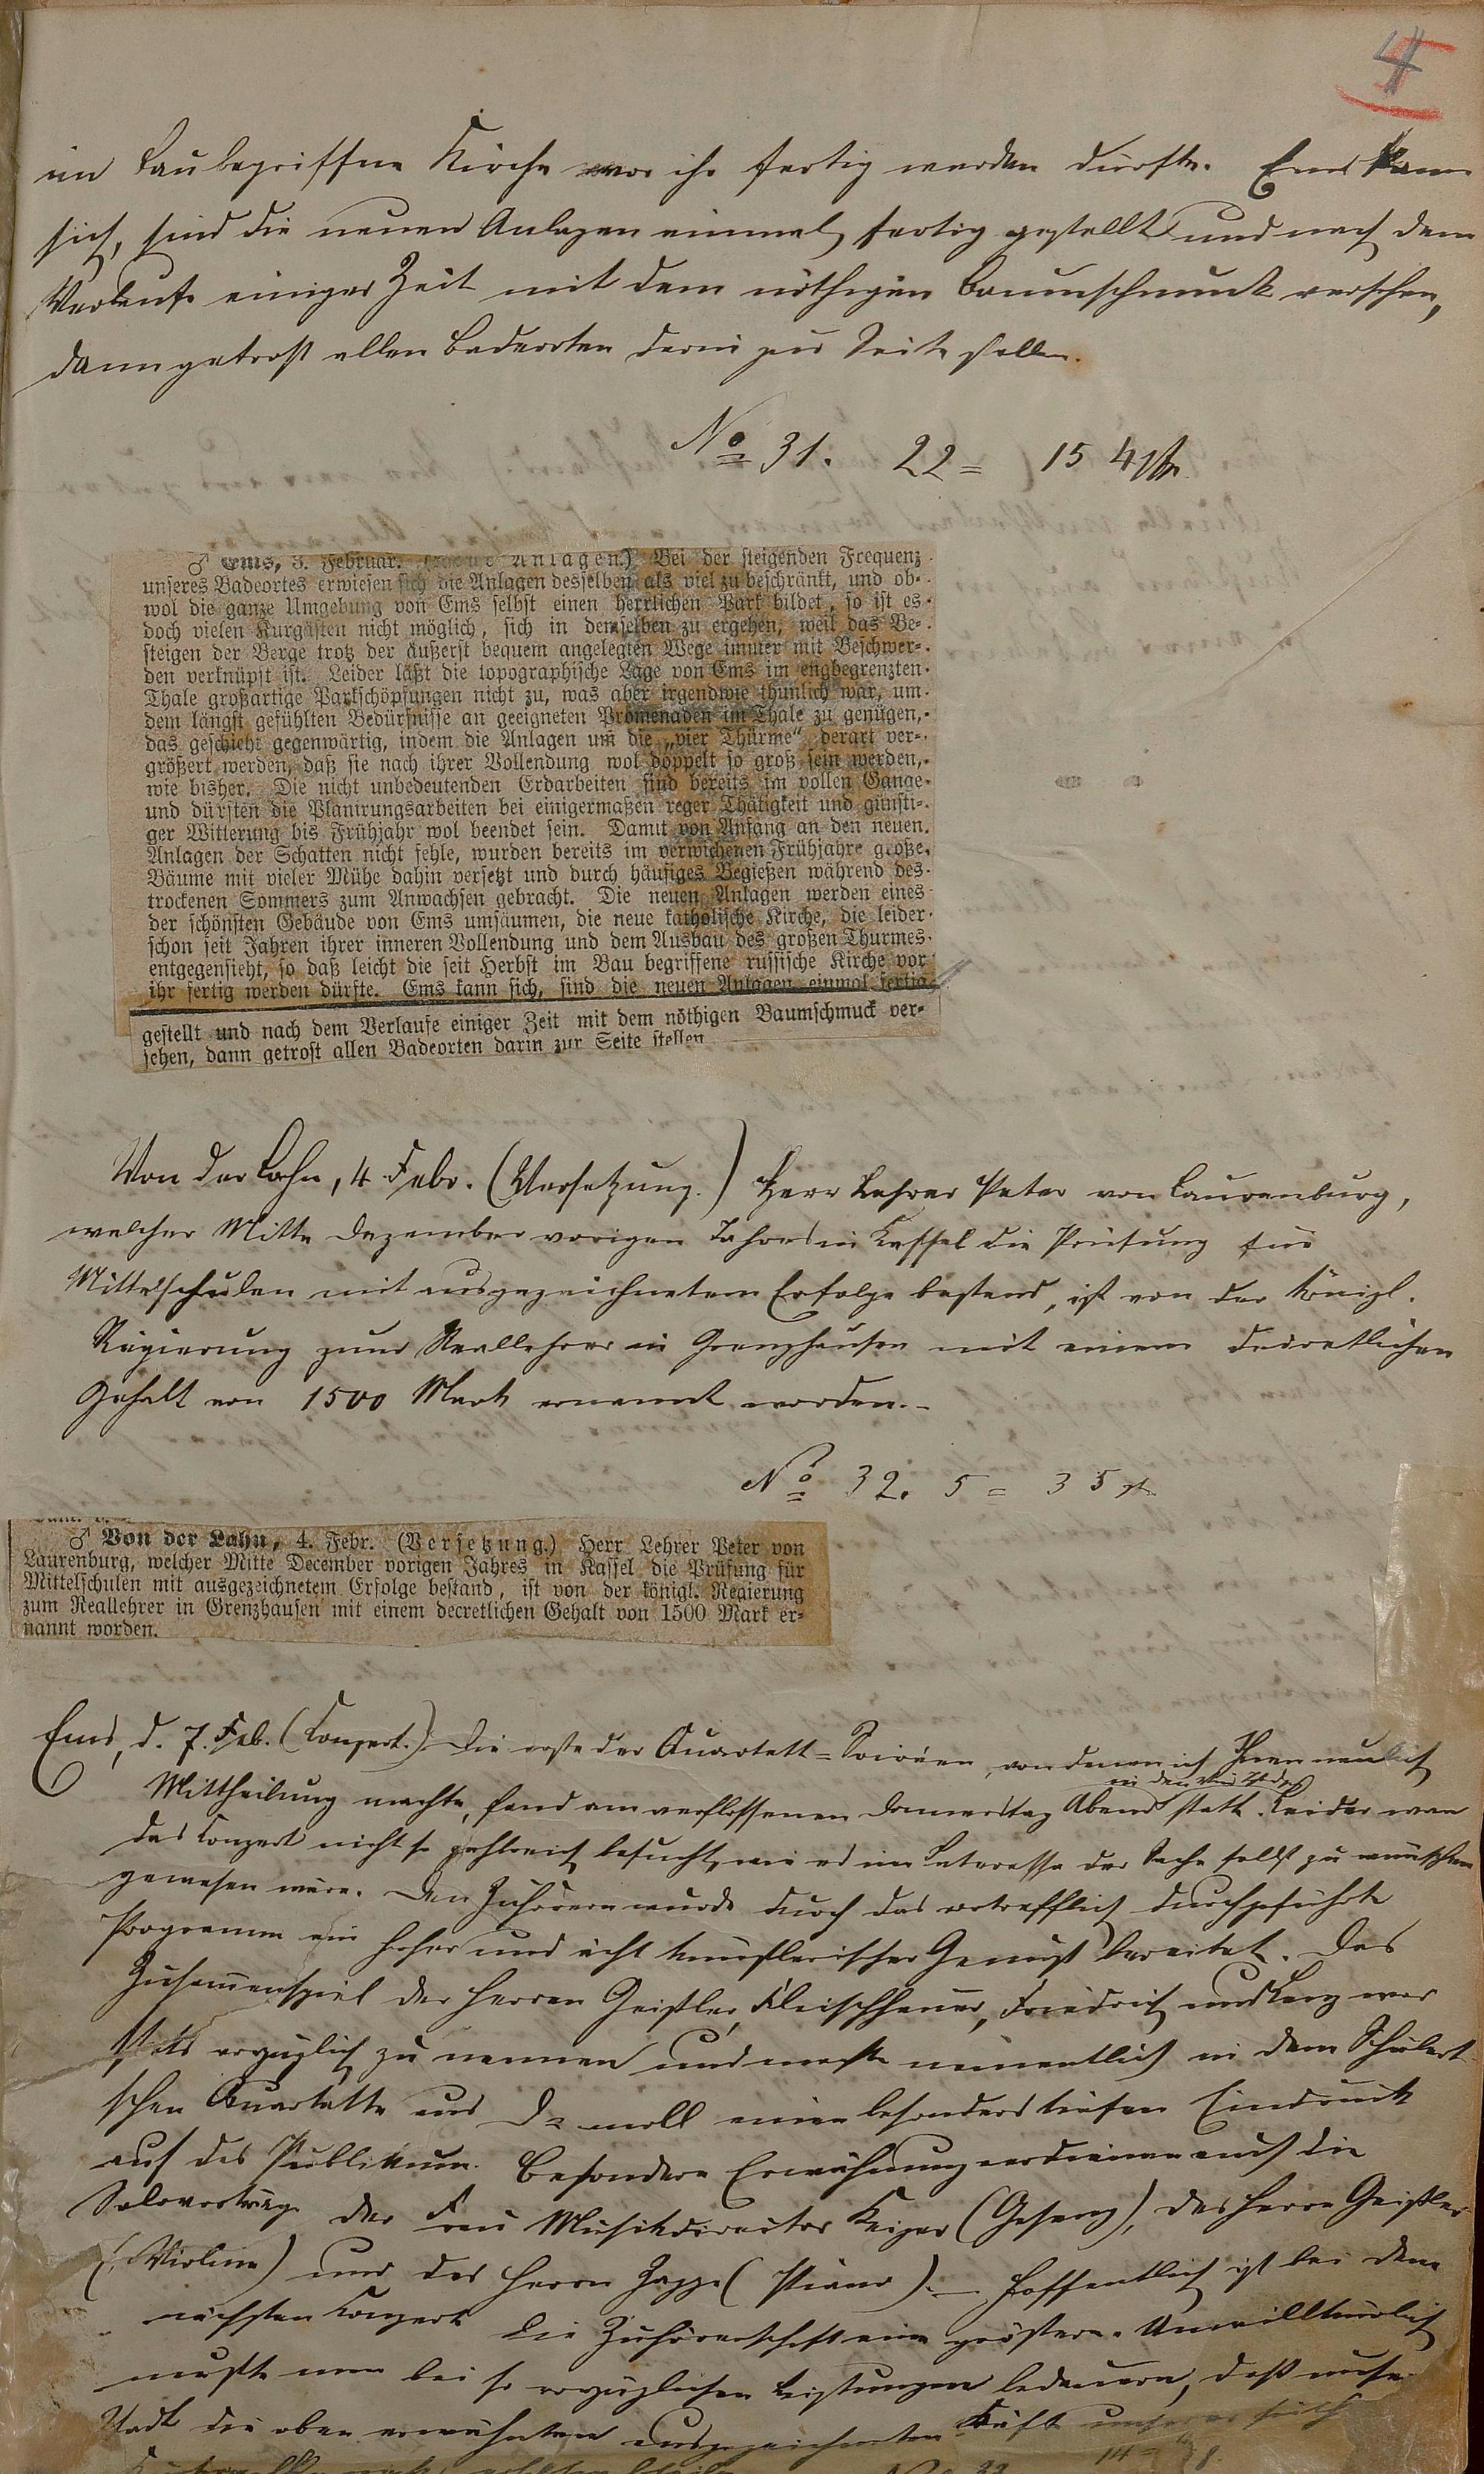 4
im Bau begriffene Kirche vor ihr fertig werden dürfte. Ems kann
sich, sind die neuen Anlagen einmal fertig gestellt und nach dem
Verlaufe einiger Zeit mit dem nöthigen Baumschmuck versehen,
dann getrost allen Badeorten darin zur Seite stellen.
No 31. 22 = 154
♂ Ems, 3. Februar. (Neue Anlagen.) Bei der steigenden Frequenz
unseres Badeortes erwiesen sich die Anlagen desselben als viel zu beschränkt, und ob-
wol die ganze Umgebung von Ems selbst einen herrlichen Park bildet, so ist es
doch vielen Kurgästen nicht möglich, sich in demselben zu ergehen, weil das Be-
steigen der Berge trotz der äußerst bequem angelegten Wege immer mit Beschwer-
den verknüpft ist. Leider läßt die topographische Lage von Ems im engbegrenzten
Thale großartige Parkschöpfungen nicht zu, was aber irgendwie thunlich war, um
dem längst gefühlten Bedürfnisse an geeigneten Promenaden im Thale zu genügen,
das geschieht gegenwärtig, indem die Anlagen um die „vier Thürme“ derart ver-
größert werden, daß sie nach ihrer Vollendung wol doppelt so groß sein werden,
wie bisher. Die nicht unbedeutenden Erdarbeiten sind bereits im vollen Gange
und dürften die Planirungsarbeiten bei einigermaßen reger Thätigkeit und günsti-
ger Witterung bis Frühjahr wol beendet sein. Damit von Anfang an den neuen
Anlagen der Schatten nicht fehle, wurden bereits im verwichenen Frühjahre große
Bäume mit vieler Mühe dahin versetzt und durch häufiges Begießen während des
trockenen Sommers zum Anwachsen gebracht. Die neuen Anlagen werden eines
der schönsten Gebäude von Ems umsäumen, die neue katholische Kirche, die leider
schon seit Jahren ihrer inneren Vollendung und dem Ausbau des großen Thurmes
entgegensieht, so daß leicht die seit Herbst im Bau begriffene russische Kirche vor
ihr fertig werden dürfte. Ems kann sich, sind die neuen Anlagen einmal fertig
gestellt und nach dem Verlaufe einiger Zeit mit dem nöthigen Baumschmuck ver-
sehen, dann getrost allen Badeorten darin zur Seite stellen
Von der Lahn, 4. Febr. (Versetzung.) Herr Lehrer Peter von Laurenburg,
welcher Mitte Dezember vorigen Jahres in Kassel die Prüfung für
Mittelschulen mit ausgezeichnetem Erfolge bestand, ist von der Königl.
Regierung zum Reallehrer in Grenzhausen mit einem decretlichen
Gehalt von 1500 Mark ernannt worden.
No 32. 5 = 35
♂ Von der Lahn, 4. Febr. (Versetzung.) Herr Lehrer Peter von
Laurenburg, welcher Mitte December vorigen Jahres in Kassel die Prüfung für
Mittelschulen mit ausgezeichnetem Erfolge bestand, ist von der königl. Regierung
zum Reallehrer in Grenzhausen mit einem decretlichen Gehalt von 1500 Mark er-
nannt worden.
Ems, d. 7. Feb. (Konzert.) Die erste der Quartett-Soiréen, von denen ich Ihnen neulich
Mittheilung machte, fand am verflossenen Donnerstag Abend statt. Leider war
das Konzert nicht so zahlreich besucht, wie es im Interesse der Sache selbst zu wünschen
gewesen wäre. Den Zuhörern wurde durch das vortrefflich durchgeführte
Programm ein hoher und ächt künstlerischer Genuß bereitet. Das
Zusammenspiel der Herren Geißler, Fleischhauer, Friedrich und Lenz war
stets vorzüglich zu nennen und machte namentlich in dem Schubert-
schen Quartette aus D-moll einen besonders tiefen Eindruck
auf das Publikum. Besondere Erwähnung verdienen auch die
Solovorträge der Frau Musikdirector Keiper (Gesang), des Herrn Geißler
(Violine) und des Herrn Zapp (Piano). — Hoffentlich ist bei dem
nächsten Konzert die Zuhörerschaft eine größere. Unwillkürlich
mußte man bei so vorzüglichen Leistungen bedauern, daß unsere
Stadt die oben erwähnten ausgezeichneten Kräfte